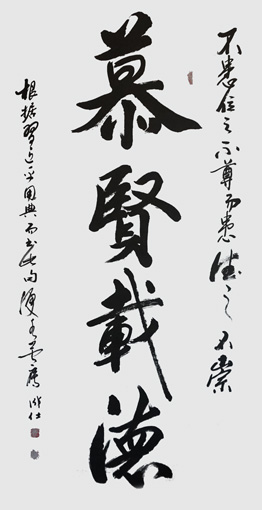 不患位之不尊而患德之不崇
慕賢載德
根据習近平用典而书此句